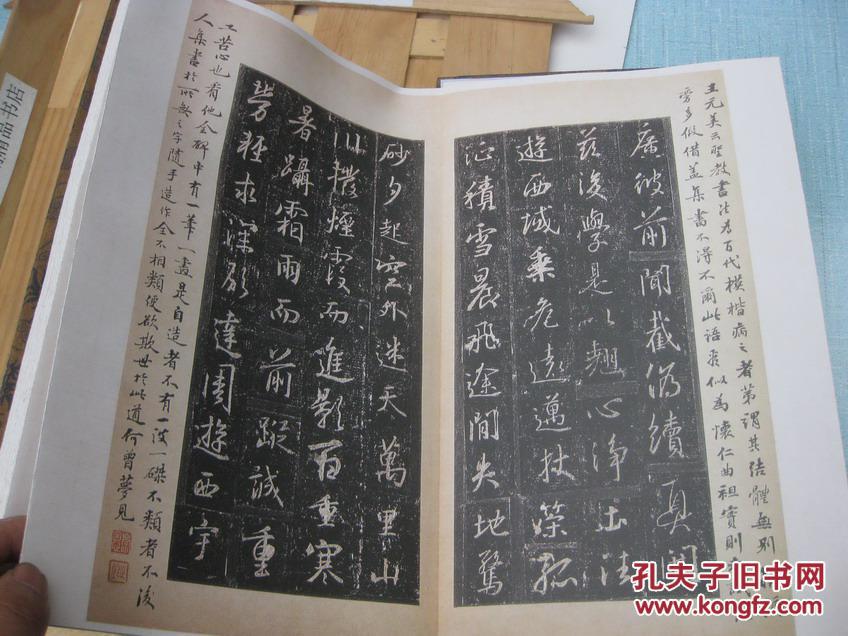 王元美云聖教書法為百代模楷病之者第謂其結體無別
旁多假借蓋集書不得不爾此語似為懷仁曲袒實則
廣彼前聞截偽續真開
茲後學是以翹心淨土法
遊西域乘危遠邁杖策孤
征積雪晨飛途閒失地驚
砂夕起空外迷天萬里山
川撥煙霞而進影百重寒
暑躡霜雨而前蹤誠重
勞輕求深願達周遊西宇
工苦心也看他全碑中有一筆一畫是自造者不有一波一磔不類者不後
人集書於所無之字隨手造作全不相類便欲欺世於此道何曾夢見
品书店
孔夫子旧书网
www.kongfz.com